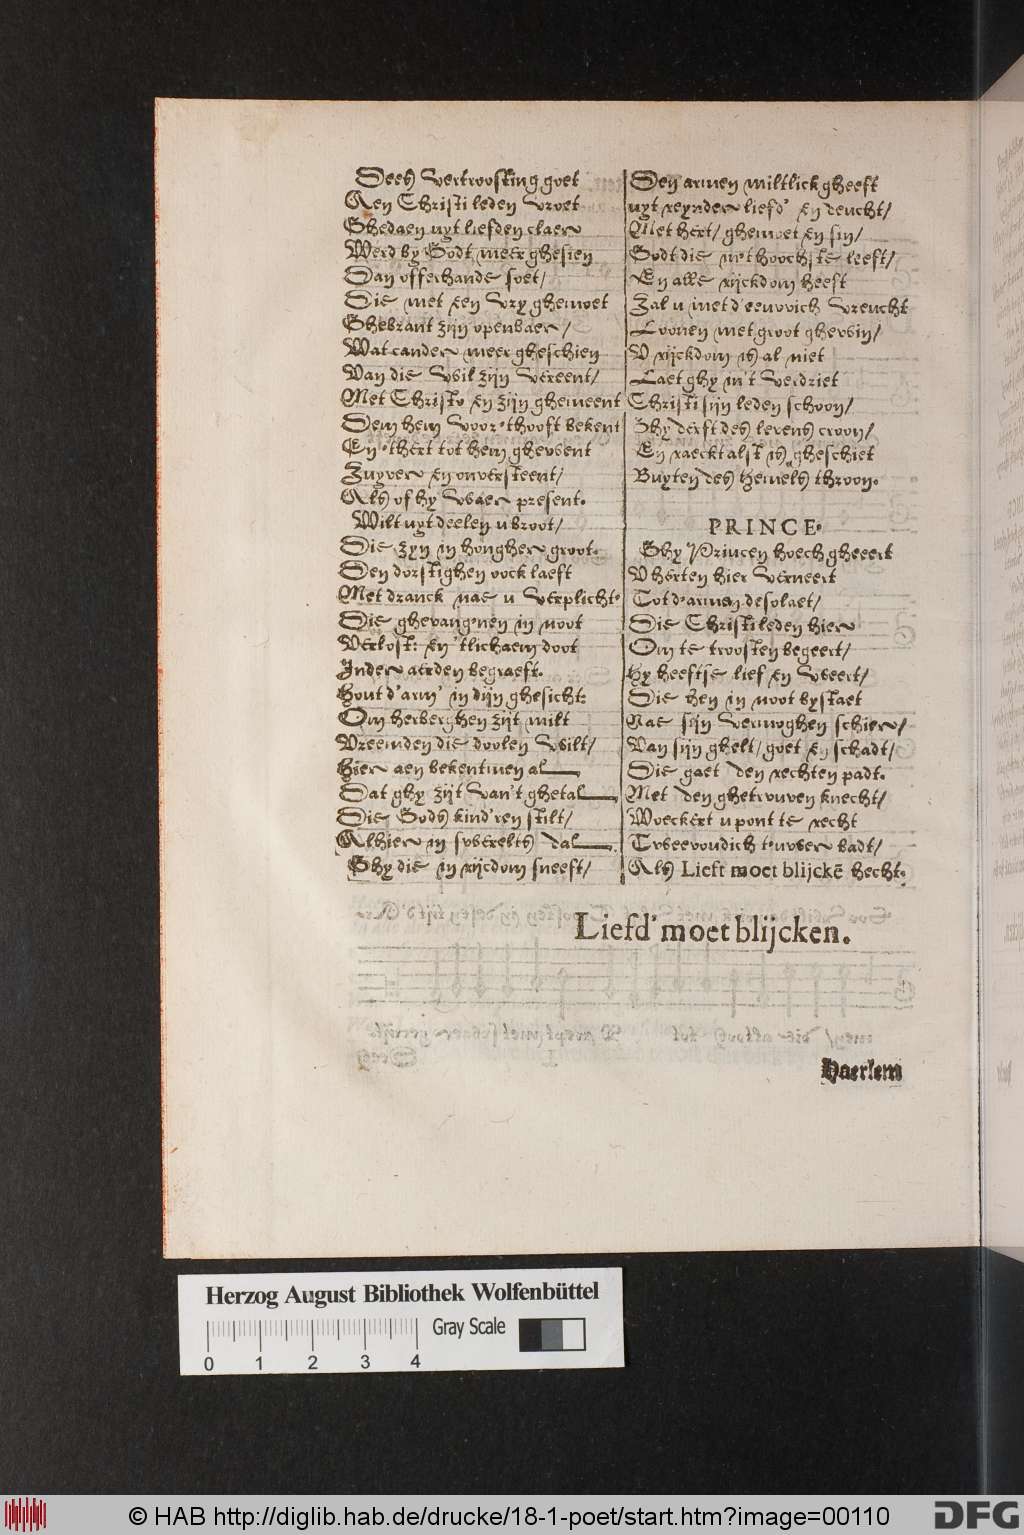 Dees vertroosting goet
Aen Christi leden vroet
Ghedaen uyt liefden claer
Werd by Godt meer ghesien
Dan offerhande soet/
Die met een vry ghemoet
Ghebrant zijn openbaer/
Wat cander meer gheschien
Van die wil zijn vereent/
Met Christo en zijn ghemeent
Dem hem voor 'thooft bekent
En 'thert tot hem ghewent
Zuyver en onversteent/
Als of hy waer present.
Wilt uyt deelen u broot/
Die zyn in hongher groot.
Den dorstighen oock laeft
Met dranck nae u verplicht.
Die ghevang'nen in noot
Verlost: en 'tlichaem doot
Inder aerden begraeft.
Hout d'arm' in dijn ghesicht:
Om herberghen zijt milt
Vreemden die doolen wilt/
Hier aen bekentmen al
Dat ghy zijt van't ghetal
Die Gods kind'ren stilt/
Alhier in swerelts dal.
Ghy die in rijcdom sneeft/
Den armen miltlick gheeft
uyt reynder liefd' en deucht/
Met hert/ ghemoet en sin/
Godt die int hoochste leeft/
En alle rijckdom heeft
Zal u met d'eewich vreucht
Loonen met groot ghewin/
V rijckdom is al niet
Laet ghy in't verdriet
Christi sijn leden schoon/
Ghy derft des levens croon/
En raeckt alst is gheschiet
Buyten des hemels throon.
PRINCE.
Ghy Princen hoech gheeert
V herten hier verneert
Tot d'armen desolaet/
Die Christi leden hier
Om te troosten begeert/
Hy heeftse lief en weert/
Die hen in noot bystaet
Nae sijn vermoghen schier/
Van sijn ghelt/ goet en schadt/
Die gaet den rechten padt.
Met den ghetrouwen knecht/
Woeckert u pont te recht
Tweevoudich t'uwer badt/
Als Lieft moet blijckē hecht.
Liefd' moet blijcken.
Haerlem
Herzog August Bibliothek Wolfenbüttel
Gray Scale
0 1 2 3 4
© HAB http://diglib.hab.de/drucke/18-1-poet/start.htm?image=00110
DFG